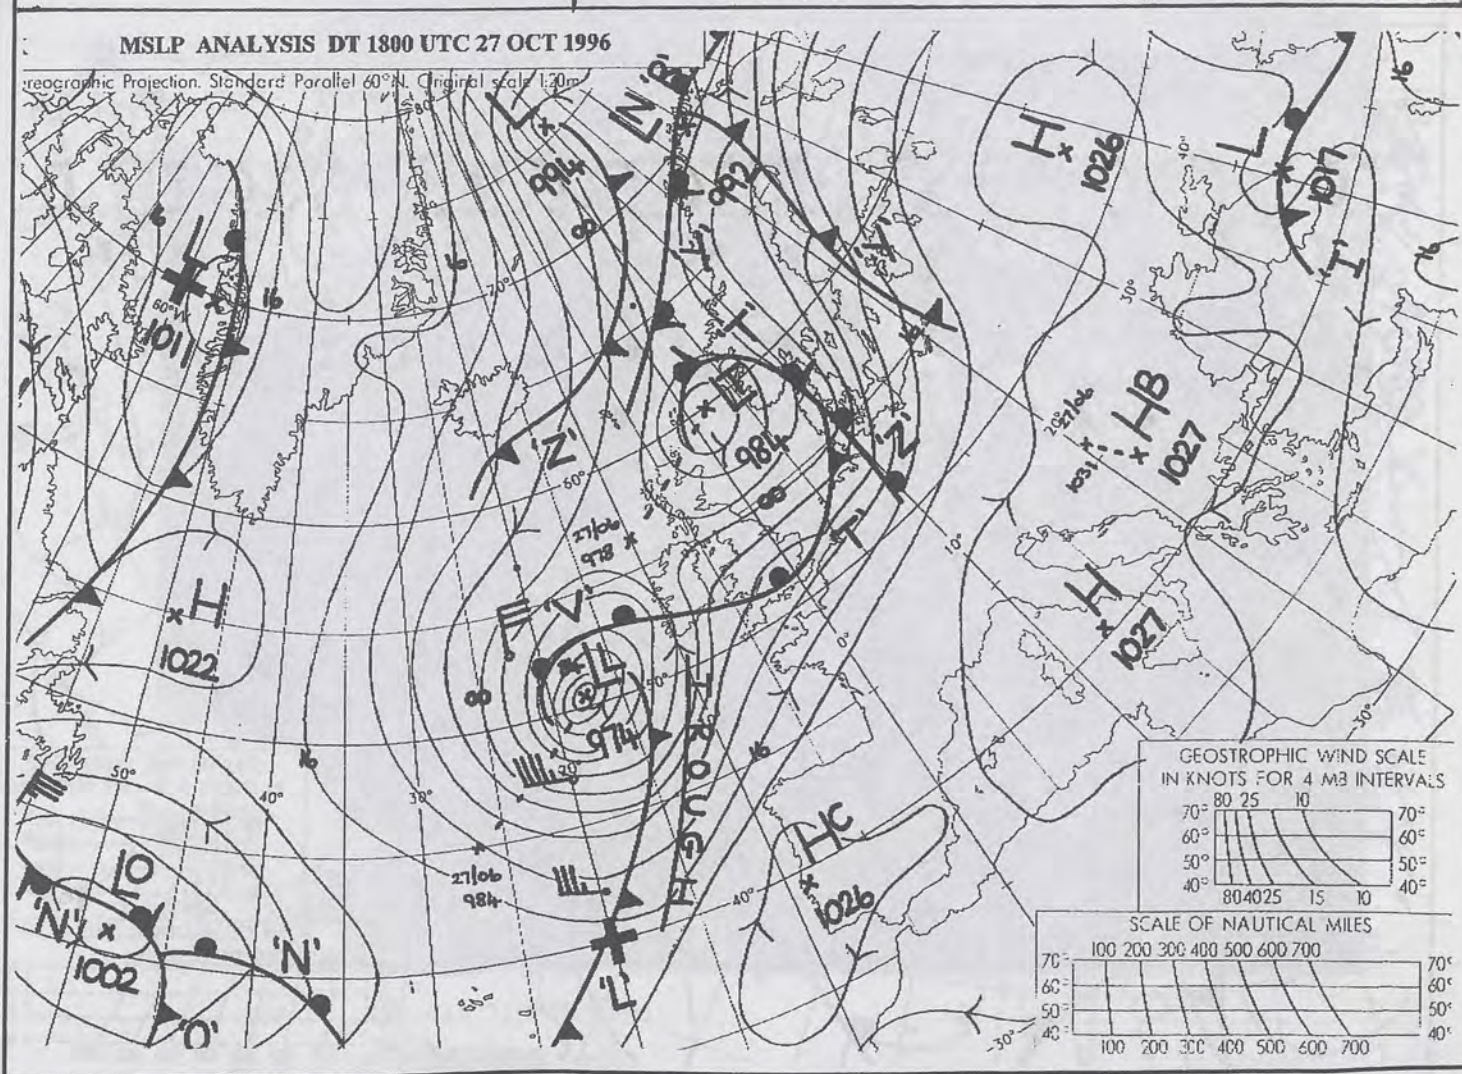 MSLP ANALYSIS DT 1800 UTC 27 OCT 1996
reographic Projection. Standard Parallel 60°N. Original scale 1:20m
80°
L
994
992
'T'
8
H
1026
40°
L
1017
'I'
16
16
L
1011
16
16
70°
'X'
'T'
30°
984
'Z'
'Z'
60°
8
20°
27/06
HB
1027
1031
27/06
978
'T'
10°
H
1022
'V'
LL
974
50°
8
H
1027
0°
TROUGH
16
16
50°
40°
30°
20°
30°
27/06
984
HC
1026
40°
LO
'N'
1002
'N'
'O'
'L'
-30°
GEOSTROPHIC WIND SCALE
IN KNOTS FOR 4 MB INTERVALS
80 25 10
70° 70°
60° 60°
50° 50°
40° 40°
80 40 25 15 10
SCALE OF NAUTICAL MILES
100 200 300 400 500 600 700
70° 70°
60° 60°
50° 50°
40° 40°
100 200 300 400 500 600 700